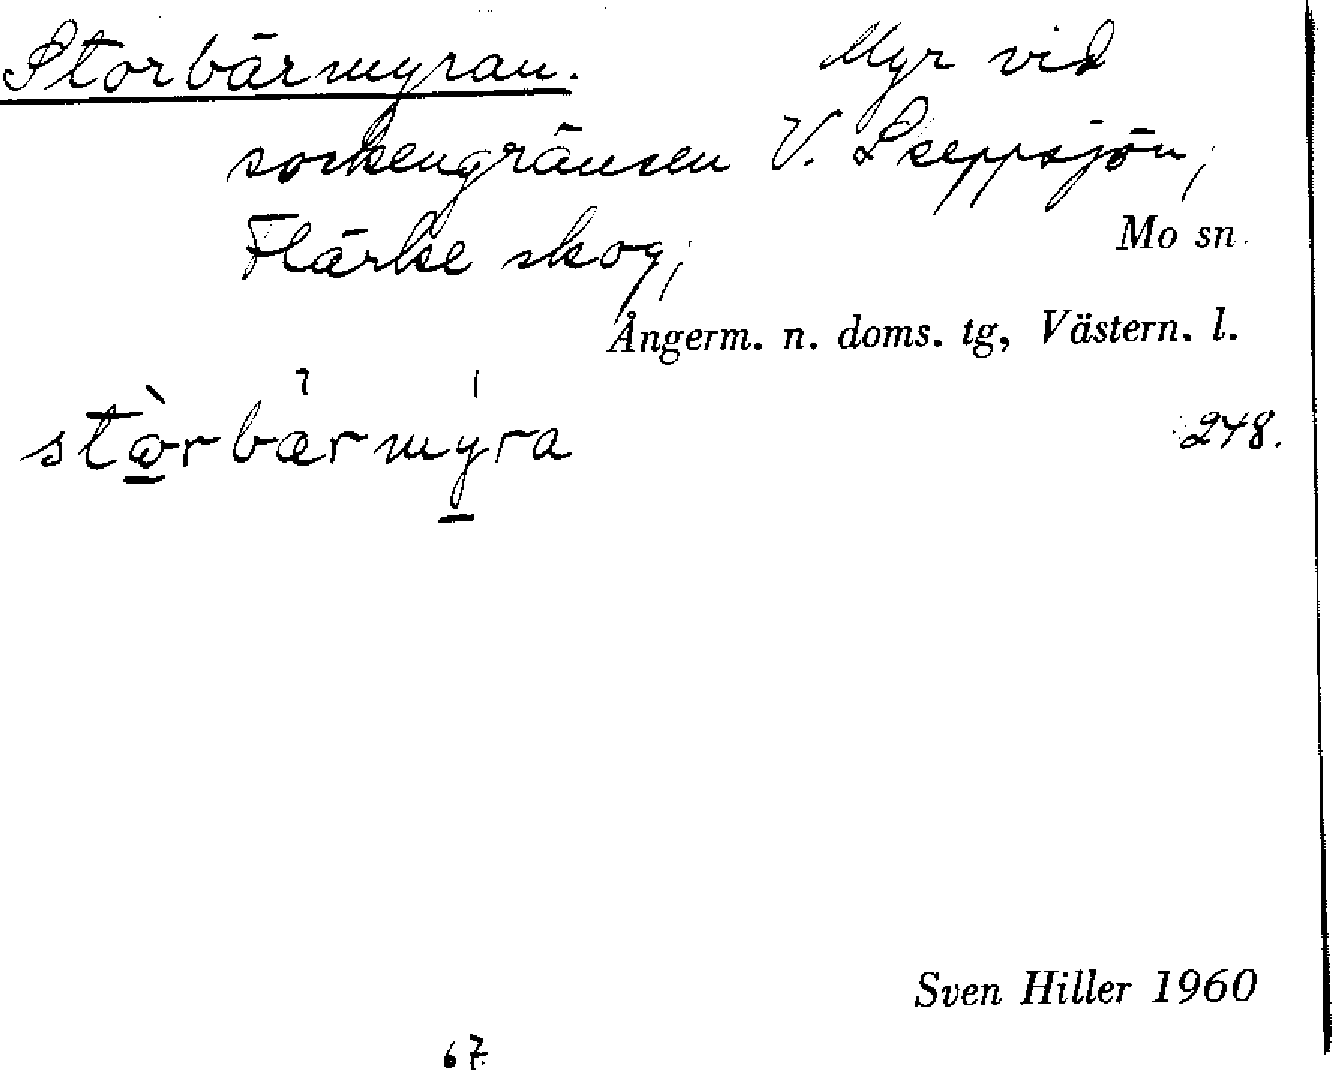 Storbärmyran. Myr vid
sockengränsen V. Skeppsjön,
Flärke skog,
Mo sn
Ångerm. n. doms. tg, Västern. l.
stòrbærmyra
248.
Sven Hiller 1960
67